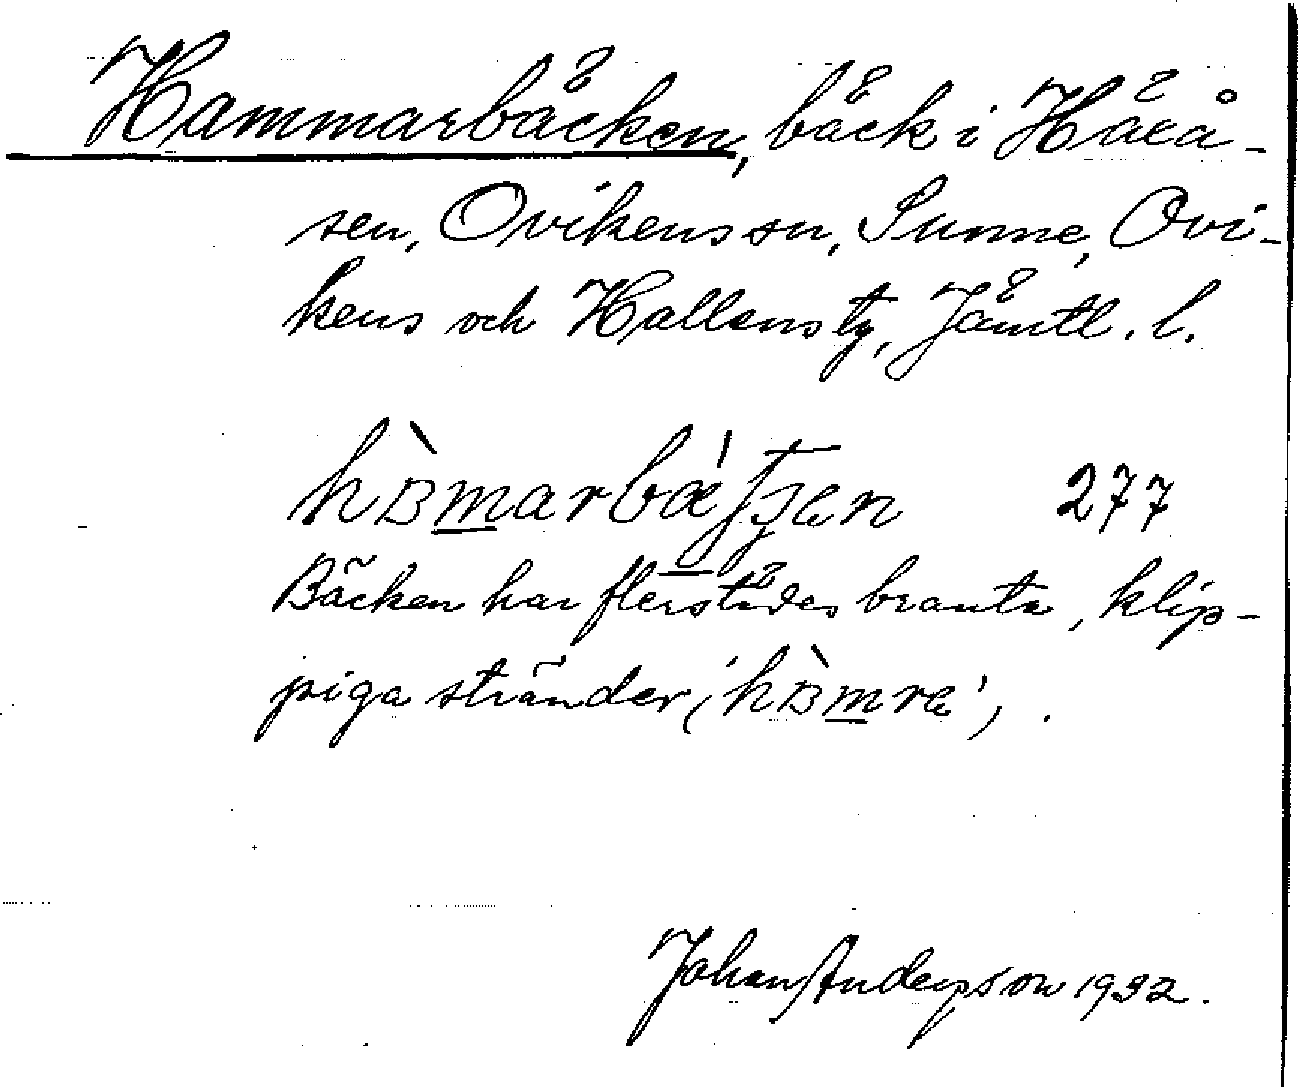 Hammarbäcken, bäck i Häråsen, Ovikens sn, Sunne, Ovi-
kens och Hallens tg, Jämtl. l.
277
Bäcken har flerstädes branta, klip-
piga stränder
Johan Anderson 1932.